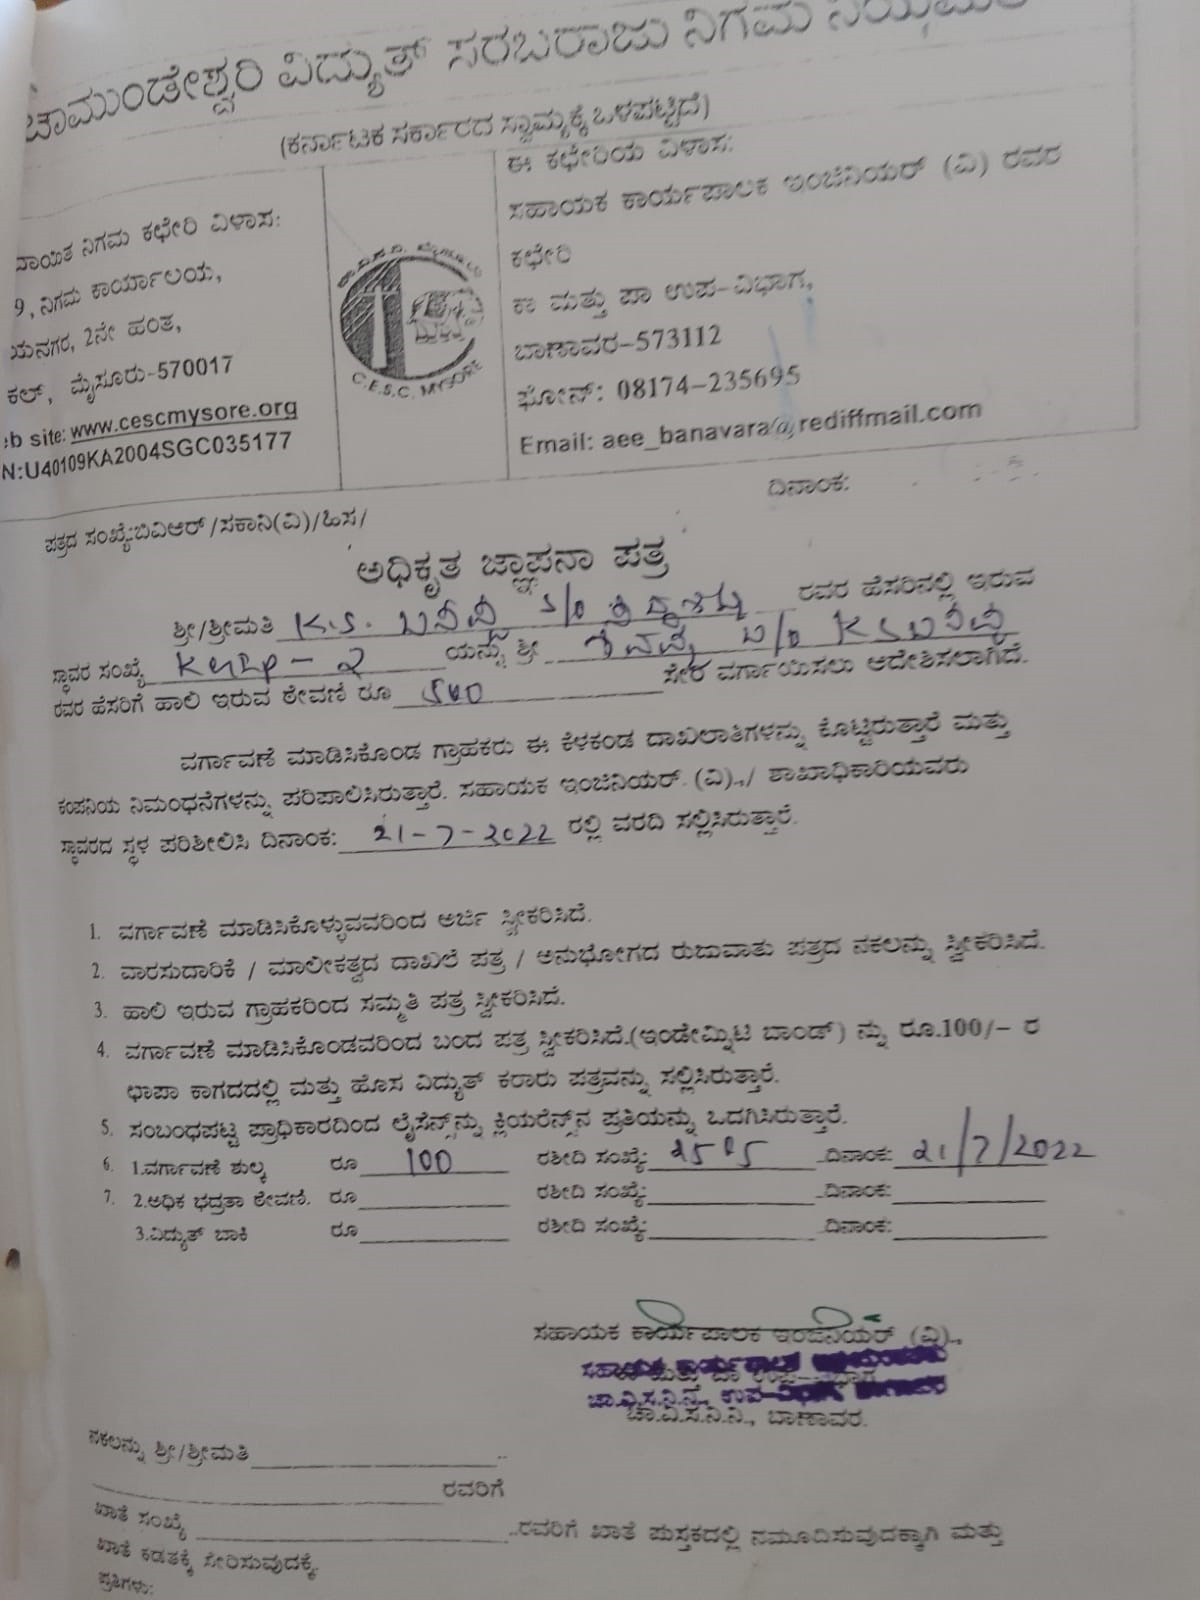 ಚಾಮುಂಡೇಶ್ವರಿ ವಿದ್ಯುತ್ ಸರಬರಾಜು ನಿಗಮ
(ಕರ್ನಾಟಕ ಸರ್ಕಾರದ ಸ್ವಾಮ್ಯಕ್ಕೆ ಒಳಪಟ್ಟಿದೆ)
ನಿಗಮ ಕಛೇರಿ ವಿಳಾಸ:
9, ನಿಗಮ ಕಾರ್ಯಾಲಯ,
ಯನಗರ, 2ನೇ ಹಂತ,
ಕಲ್, ಮೈಸೂರು-570017
eb site: www.cescmysore.org
N:U40109KA2004SGC035177
C.E.S.C. MYSORE
ಈ ಕಛೇರಿಯ ವಿಳಾಸ:
ಸಹಾಯಕ ಕಾರ್ಯಪಾಲಕ ಇಂಜಿನಿಯರ್ (ವಿ) ರವರ
ಕಛೇರಿ
ಕಾ ಮತ್ತು ಪಾ ಉಪ-ವಿಭಾಗ,
ಬಾಣಾವರ-573112
ಫೋನ್: 08174-235695
Email: aee_banavara@rediffmail.com
ಪತ್ರದ ಸಂಖ್ಯೆ:ಬಿವಿಆರ್/ಸಕಾನಿ(ವಿ)/ಹಿಸ/
ದಿನಾಂಕ:
ಅಧಿಕೃತ ಜ್ಞಾಪನಾ ಪತ್ರ
ಶ್ರೀ/ಶ್ರೀಮತಿ K.S. S/o ರವರ ಹೆಸರಿನಲ್ಲಿ ಇರುವ
ಸ್ಥಾವರ ಸಂಖ್ಯೆ ಯನ್ನು ಶ್ರೀ
ರವರ ಹೆಸರಿಗೆ ಹಾಲಿ ಇರುವ ಠೇವಣಿ ರೂ ಸೇರಿ ವರ್ಗಾಯಿಸಲು ಆದೇಶಿಸಲಾಗಿದೆ.
ವರ್ಗಾವಣೆ ಮಾಡಿಸಿಕೊಂಡ ಗ್ರಾಹಕರು ಈ ಕೆಳಕಂಡ ದಾಖಲಾತಿಗಳನ್ನು ಕೊಟ್ಟಿರುತ್ತಾರೆ ಮತ್ತು
ಕಂಪನಿಯ ನಿಮಂಧನೆಗಳನ್ನು ಪರಿಪಾಲಿಸಿರುತ್ತಾರೆ. ಸಹಾಯಕ ಇಂಜಿನಿಯರ್. (ವಿ).,/ ಶಾಖಾಧಿಕಾರಿಯವರು
ಸ್ಥಾವರದ ಸ್ಥಳ ಪರಿಶೀಲಿಸಿ ದಿನಾಂಕ: 21-7-2022 ರಲ್ಲಿ ವರದಿ ಸಲ್ಲಿಸಿರುತ್ತಾರೆ.
1. ವರ್ಗಾವಣೆ ಮಾಡಿಸಿಕೊಳ್ಳುವವರಿಂದ ಅರ್ಜಿ ಸ್ವೀಕರಿಸಿದೆ.
2. ವಾರಸುದಾರಿಕೆ / ಮಾಲೀಕತ್ವದ ದಾಖಲೆ ಪತ್ರ / ಅನುಭೋಗದ ರುಜುವಾತು ಪತ್ರದ ನಕಲನ್ನು ಸ್ವೀಕರಿಸಿದೆ.
3. ಹಾಲಿ ಇರುವ ಗ್ರಾಹಕರಿಂದ ಸಮ್ಮತಿ ಪತ್ರ ಸ್ವೀಕರಿಸಿದೆ.
4. ವರ್ಗಾವಣೆ ಮಾಡಿಸಿಕೊಂಡವರಿಂದ ಬಂದ ಪತ್ರ ಸ್ವೀಕರಿಸಿದೆ.(ಇಂಡೇಮ್ನಿಟಿ ಬಾಂಡ್) ನ್ನು ರೂ.100/- ರ
ಛಾಪಾ ಕಾಗದದಲ್ಲಿ ಮತ್ತು ಹೊಸ ವಿದ್ಯುತ್ ಕರಾರು ಪತ್ರವನ್ನು ಸಲ್ಲಿಸಿರುತ್ತಾರೆ.
5. ಸಂಬಂಧಪಟ್ಟ ಪ್ರಾಧಿಕಾರದಿಂದ ಲೈಸೆನ್ಸ್‌ನ್ನು ಕ್ಲಿಯರೆನ್ಸ್‌ನ ಪ್ರತಿಯನ್ನು ಒದಗಿಸಿರುತ್ತಾರೆ.
6. 1.ವರ್ಗಾವಣೆ ಶುಲ್ಕ ರೂ 100 ರಶೀದಿ ಸಂಖ್ಯೆ: ದಿನಾಂಕ: 21/7/2022
7. 2.ಅಧಿಕ ಭದ್ರತಾ ಠೇವಣಿ. ರೂ ರಶೀದಿ ಸಂಖ್ಯೆ: ದಿನಾಂಕ:
3.ವಿದ್ಯುತ್ ಬಾಕಿ ರೂ ರಶೀದಿ ಸಂಖ್ಯೆ: ದಿನಾಂಕ:
ಸಹಾಯಕ ಕಾರ್ಯಪಾಲಕ ಇಂಜಿನಿಯರ್ (ವಿ).,
ಸಹಾಯಕ ಕಾರ್ಯಪಾಲಕ
ಚಾ.ವಿ.ಸ.ನಿ.ನಿ., ಉಪ-ವಿಭಾಗ
ಚಾ.ವಿ.ಸ.ನಿ.ನಿ., ಬಾಣಾವರ.
ನಕಲನ್ನು ಶ್ರೀ/ಶ್ರೀಮತಿ
ರವರಿಗೆ
ಖಾತೆ ಸಂಖ್ಯೆ ..ರವರಿಗೆ ಖಾತೆ ಪುಸ್ತಕದಲ್ಲಿ ನಮೂದಿಸುವುದಕ್ಕಾಗಿ ಮತ್ತು
ಖಾತೆ ಕಡತಕ್ಕೆ ಸೇರಿಸುವುದಕ್ಕೆ.
ಪ್ರತಿಗಳು: